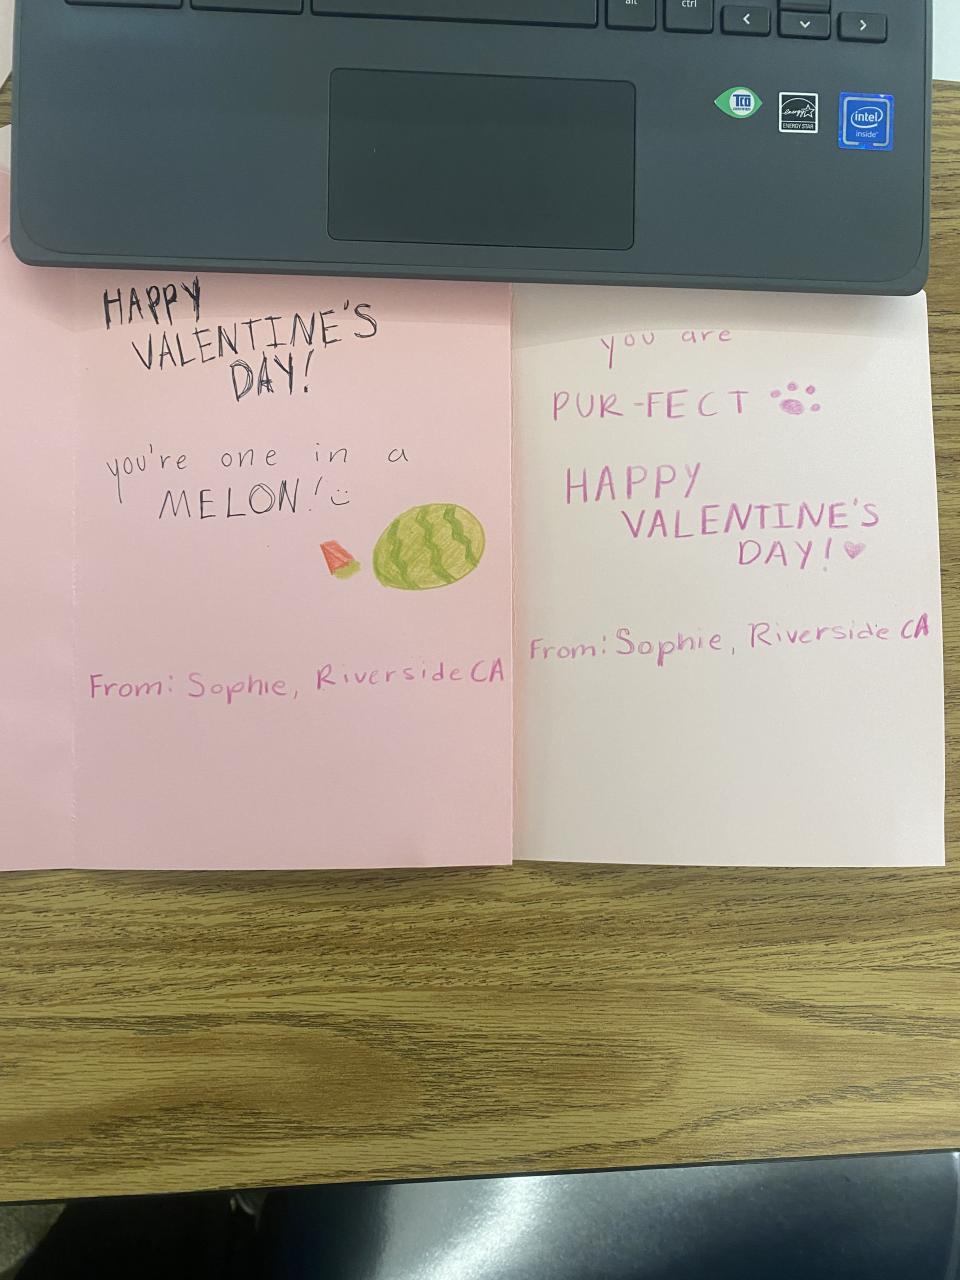 alt
ctrl
<
>
TCO
CERTIFIED
energy
ENERGY STAR
intel
inside
HAPPY
VALENTINE'S
DAY!
you're one in a
MELON!
From: Sophie, Riverside CA
you are
PUR-FECT
HAPPY
VALENTINE'S
DAY!
From: Sophie, Riverside CA